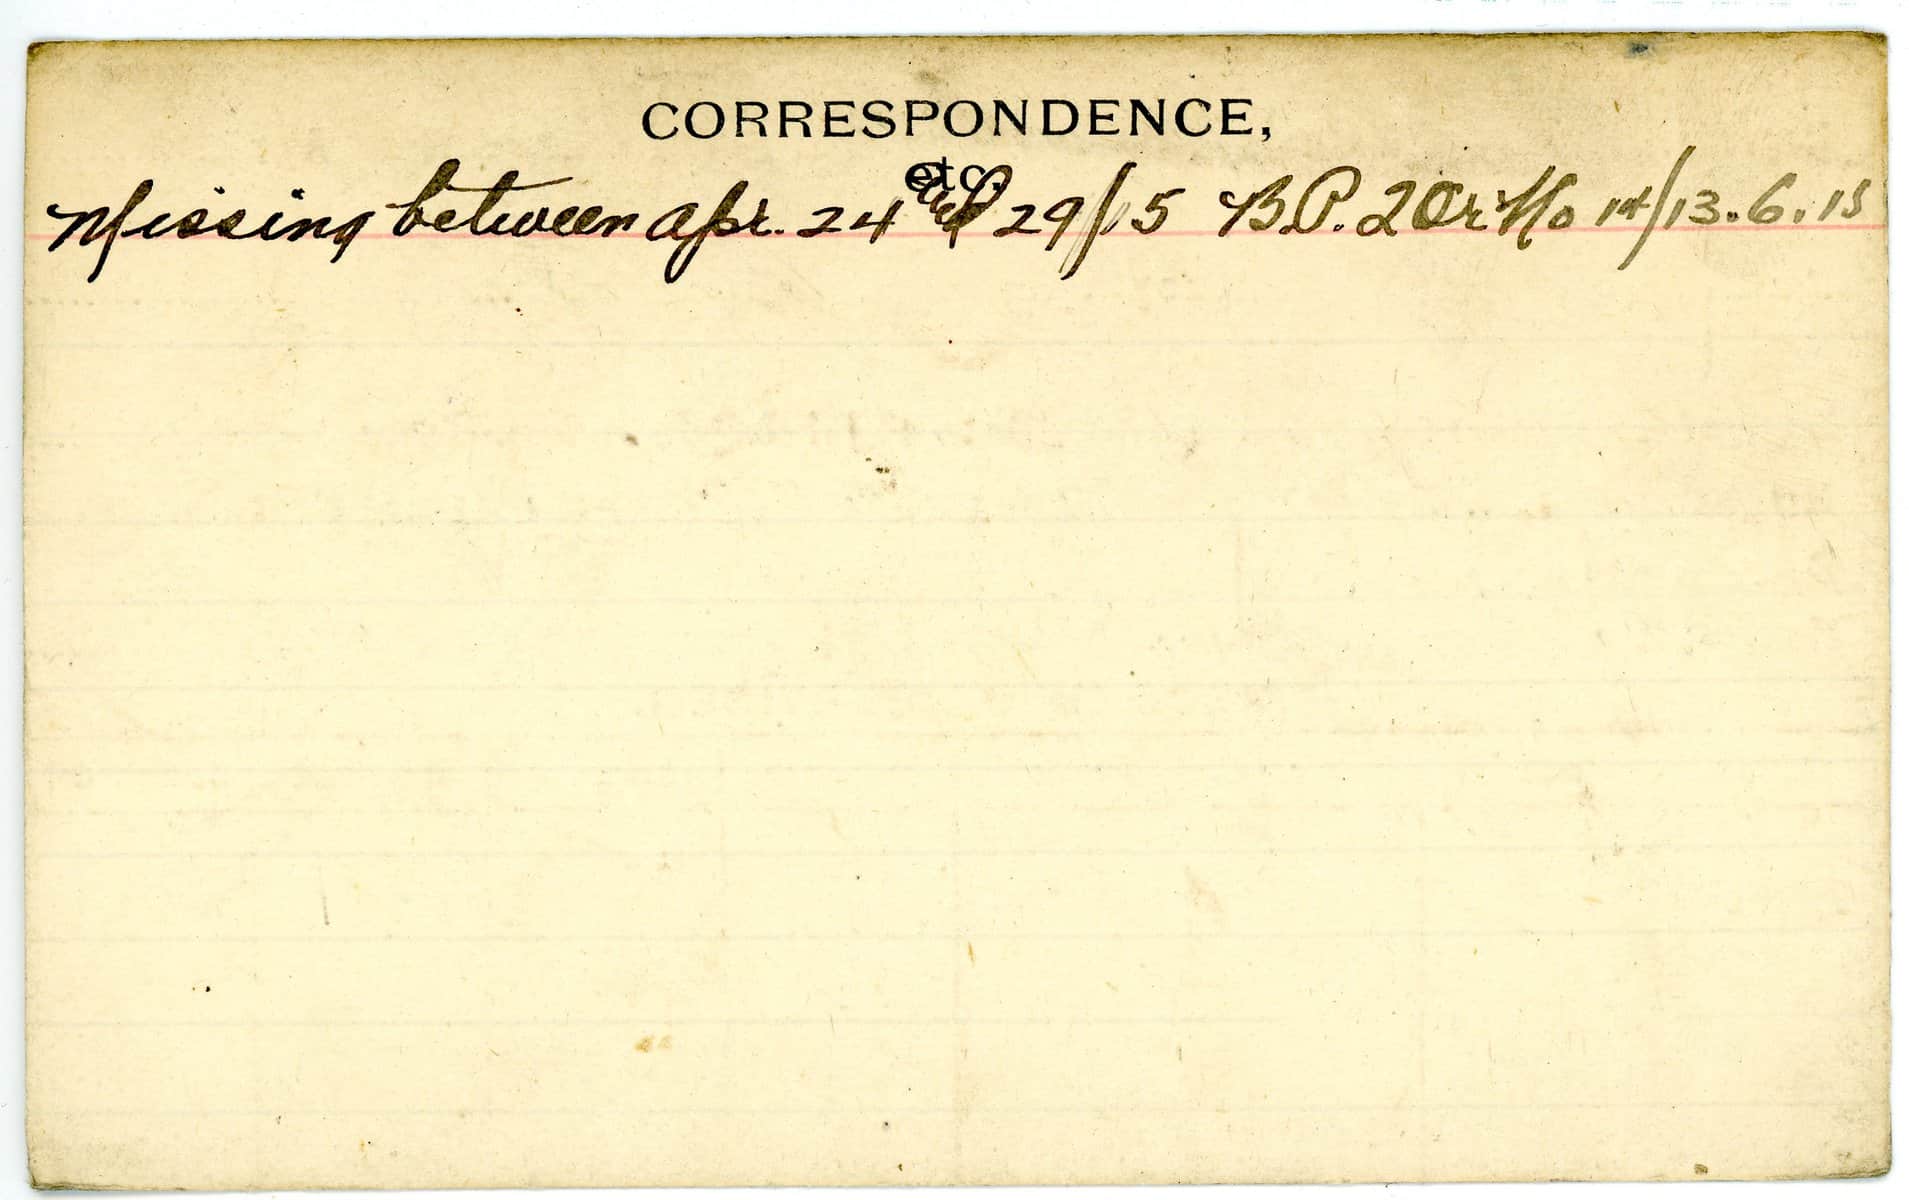 CORRESPONDENCE,
etc.
Missing between Apr. 24 & 29/15 B.P. 2 Or No 14/13.6.15